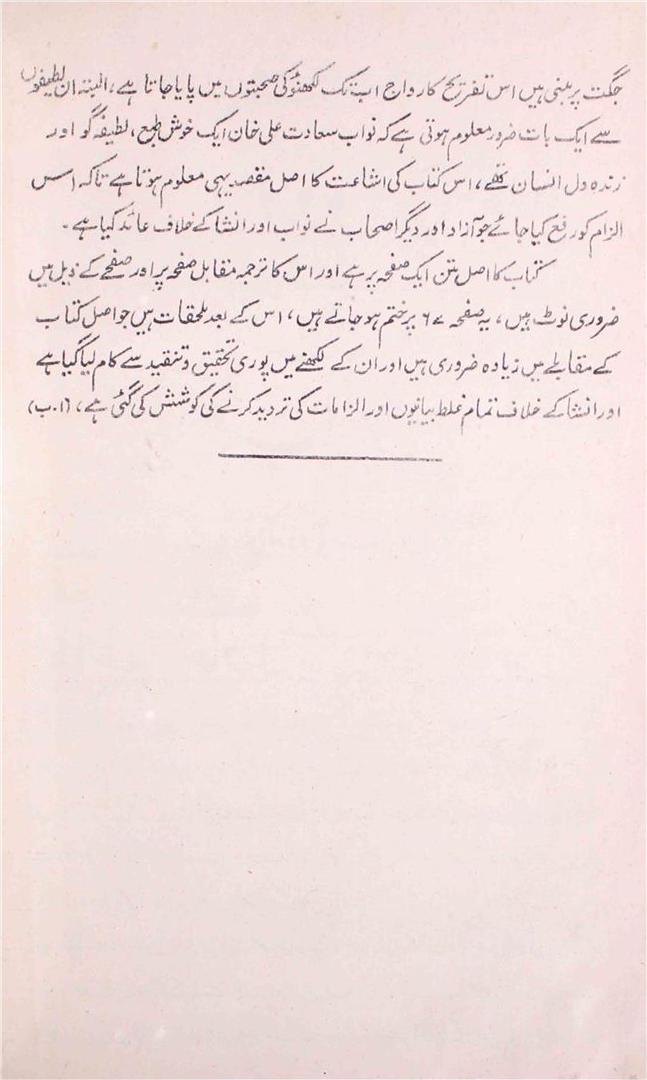 جگت پر مبنی ہیں اس تفریح کا رواج اب تک لکھنؤ کی صحبتوں میں پایا جاتا ہے، البتہ ان لطیفوں
سے ایک بات ضرور معلوم ہوتی ہے کہ نواب سعادت علی خان ایک خوش طبع، لطیفہ گو اور
زندہ دل انسان تھے، اس کتاب کی اشاعت کا اصل مقصد یہی معلوم ہوتا ہے تاکہ اس
الزام کو رفع کیا جائے جو آزاد اور دیگر اصحاب نے نواب اور انشا کے خلاف عائد کیا ہے۔
کتاب کا اصل متن ایک صفحہ پر ہے اور اس کا ترجمہ مقابل صفحہ پر اور صفحے کے ذیل میں
ضروری نوٹ ہیں، یہ صفحہ ۶۷ پر ختم ہو جاتے ہیں، اس کے بعد ملحقات ہیں جو اصل کتاب
کے مقابلے میں زیادہ ضروری ہیں اور ان کے لکھنے میں پوری تحقیق و تنقید سے کام لیا گیا ہے
اور انشا کے خلاف تمام غلط بیانیوں اور الزامات کی تردید کرنے کی کوشش کی گئی ہے، (ا۔ب)